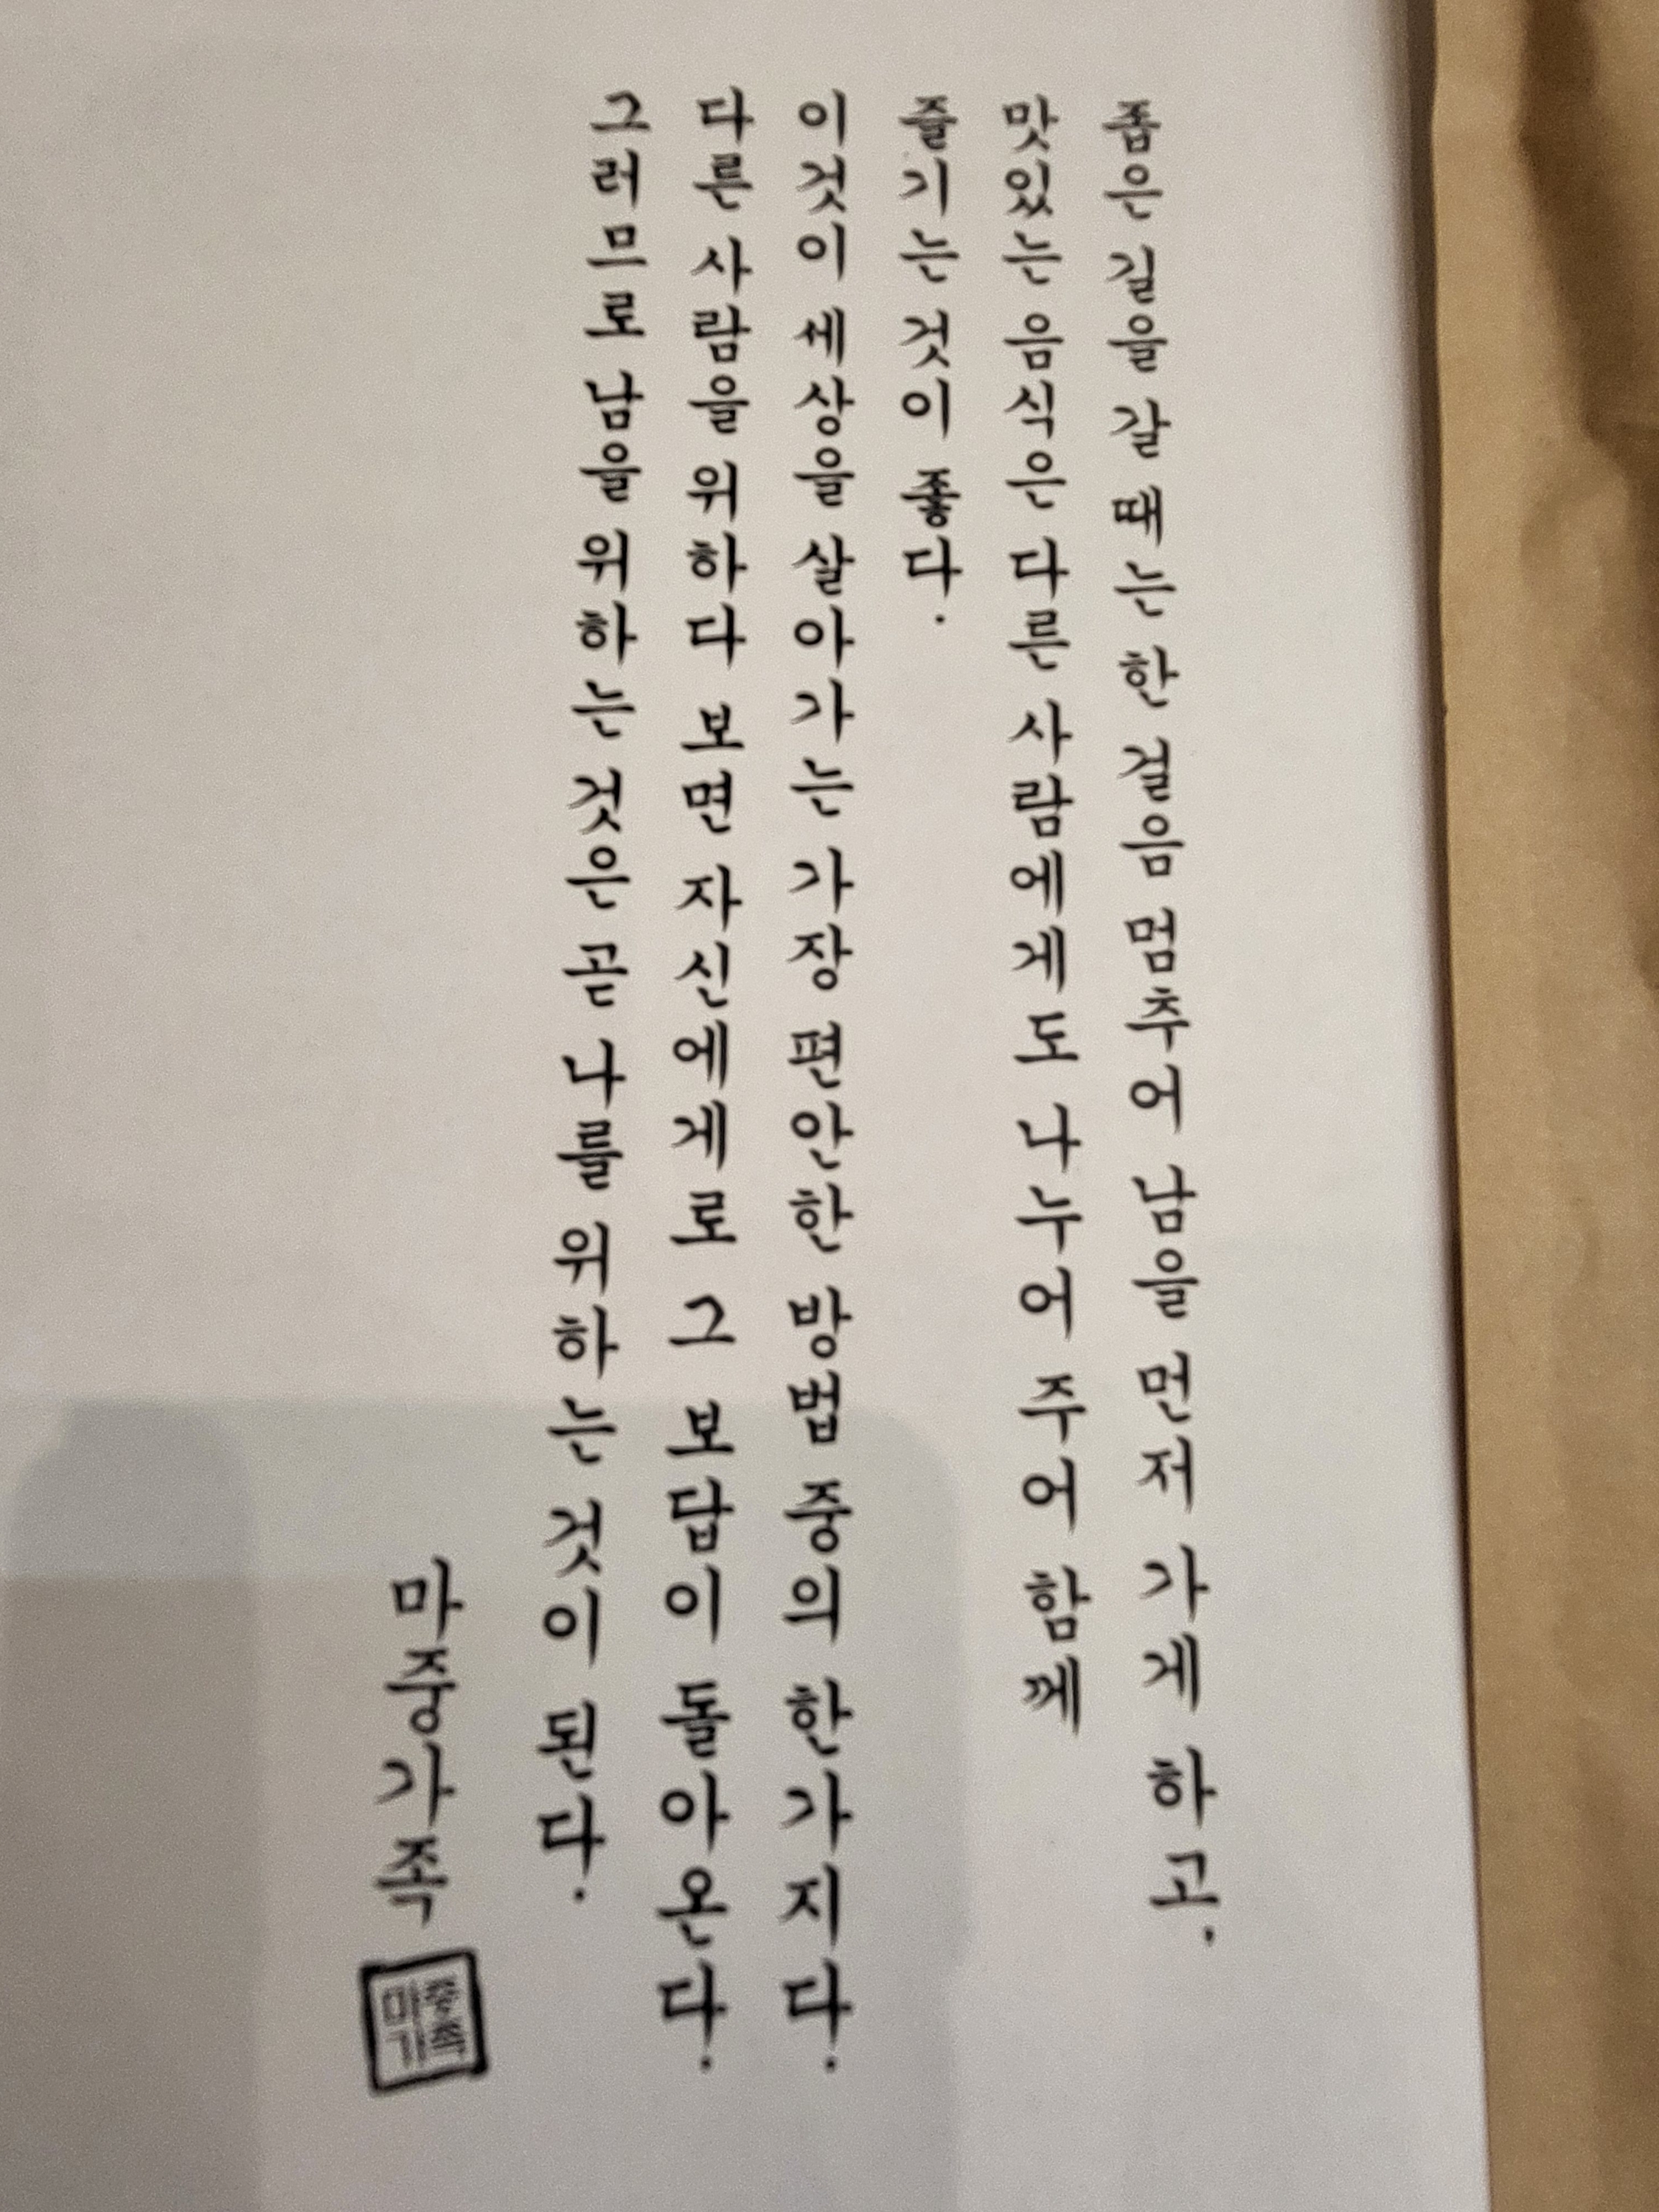 좁은 길을 갈 때는 한 걸음 멈추어 남을 먼저 가게 하고.
맛있는 음식은 다른 사람에게도 나누어 주어 함께
즐기는 것이 좋다.
이것이 세상을 살아가는 가장 편안한 방법 중의 한가지다.
다른 사람을 위하다 보면 자신에게로 그 보답이 돌아온다.
그러므로 남을 위하는 것은 곧 나를 위하는 것이 된다.
마중가족
마중
가족